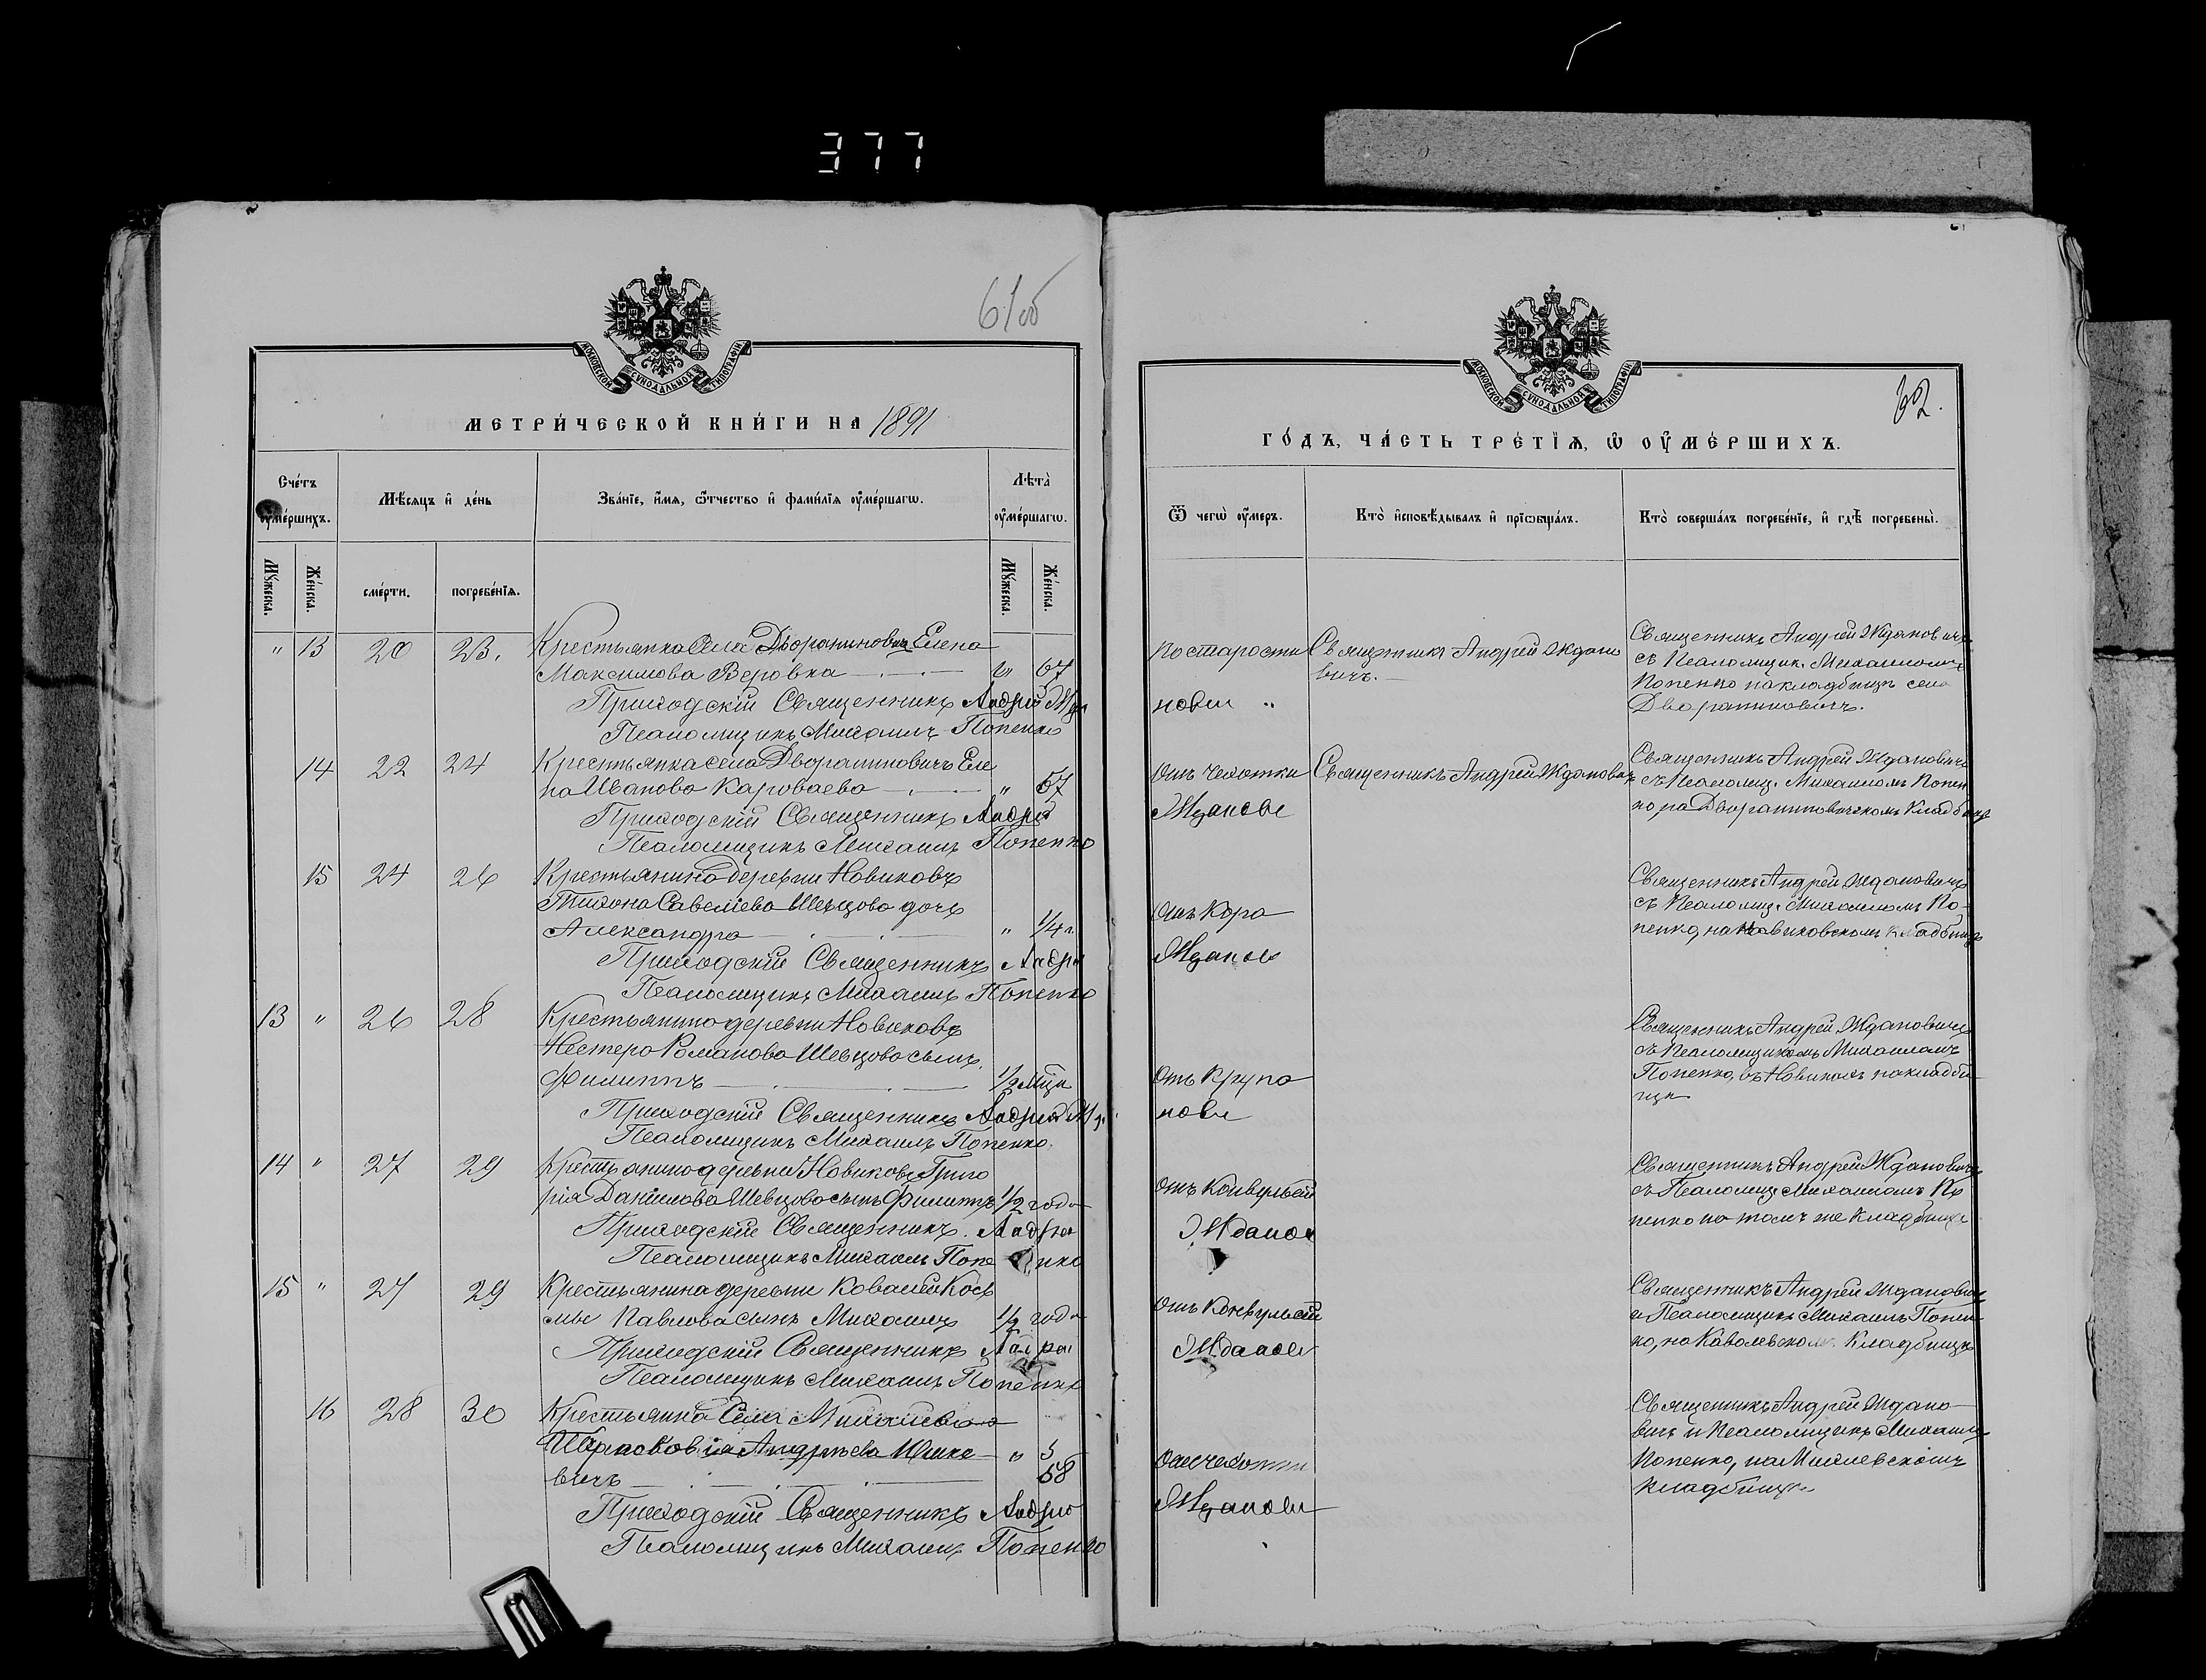 377
61об
МОСКОВСКОЙ СѴНОДАЛЬНОЙ ТИПОГРАФІИ
МЕТРИ́ЧЕСКОЙ КНИ́ГИ НА 1891
Сче́тъ ᲂу҆ме́ршихъ.
Мѣ́сяцъ и҆ де́нь
Зва́нїе, и҆́мя, ѻ҆́тчество и҆ фами́лїя ᲂу҆ме́ршагѡ.
Лѣ́та ᲂу҆ме́ршагѡ.
Мꙋ́жеска.
Же́нска.
сме́рти.
погребе́нїя.
Мꙋ́жеска.
Же́нска.
" 13 20 23. Крестьянка села Дворaниновичъ Елена
Максимова Веровка " 67
Приходскій Священникъ Андрей Жда
Псаломщикъ Михаилъ Попенко
14 22 24 Крестьянка села Двораниновичъ Еле
на Иванова Караваева " 57
Приходскій Священникъ Андрей
Псаломщикъ Михаилъ Попенко
15 24 26 Крестьянина деревни Новиковъ
Тихона Савеліева Шевцова дочь
Александра " 1/4 г.
Приходскій Священникъ Андрей
Псаломщикъ Михаилъ Попенко
13 " 26 28 Крестьянина деревни Новиковъ
Нестера Романова Шевцова сынъ
Филиппъ 1/2 мѣц
Приходскій Священникъ Андрей Жд
Псаломщикъ Михаилъ Попенко.
14 " 27 29 Крестьянина деревни Новиковъ Григо
рія Даніилова Шевцова сынъ Филиппъ 1/2 года
Приходскій Священникъ Андрей
Псаломщикъ Михаилъ Попенко
15 " 27 29 Крестьянина деревни Ковалей Козь
мы Павлова сынъ Михаилъ 1/2 года
Приходскій Священникъ Андрей
Псаломщикъ Михаилъ Попенко
16 28 30 Крестьянка села
Андреева Юшке
вичъ " 58
Приходскій Священникъ Андрей
Псаломщикъ Михаилъ Попенко
62.
МОСКОВСКОЙ СѴНОДАЛЬНОЙ ТИПОГРАФІИ
ГО́ДЪ, ЧА́СТЬ ТРЕ́ТЇЯ, Ѡ҆ ОУ҆МЕ́РШИХЪ.
Ѿ чегѡ̀ ᲂу҆́меръ.
Кто̀ и҆сповѣ́дывалъ и҆ прїѡбща́лъ.
Кто̀ соверша́лъ погребе́нїе, и҆ гдѣ̀ погребены̀.
по старости
новичъ "
Священникъ Андрей Ждано
вичъ.
Священникъ Андрей Ждановичъ
съ Псаломщик. Михаиломъ
Попенко на кладбищѣ села
Двораниновичъ.
Отъ чехотки
Жданове
Священникъ Андрей Ждановичъ
Священникъ Андрей Ждановичъ
съ Псаломщ. Михаиломъ Попен
ко на Двораниновичскомъ Кладбищѣ
Отъ кора
Жданов
Священникъ Андрей Ждановичъ
съ Псаломщ. Михаиломъ По-
пенко, на Новиковскомъ кладбищѣ
Отъ Крупа
нови
Священникъ Андрей Ждановичъ
съ Псаломщикомъ Михаиломъ
Попенко, въ Новикахъ на кладби
щѣ
Отъ Конвульсій
Жданов
Священникъ Андрей Ждановичъ
съ Псаломщ. Михаиломъ По
пенко на томъ же кладбищѣ
Отъ Конвульсій
Жданови
Священникъ Андрей Ждановичъ
и Псаломщикъ Михаилъ Попен
ко, на Ковалевском. Кладбищѣ
Отъ чехотки
Жданови
Священникъ Андрей Ждано-
вичъ и Псаломщикъ Михаилъ
Попенко, на Михлевскомъ
кладбищѣ